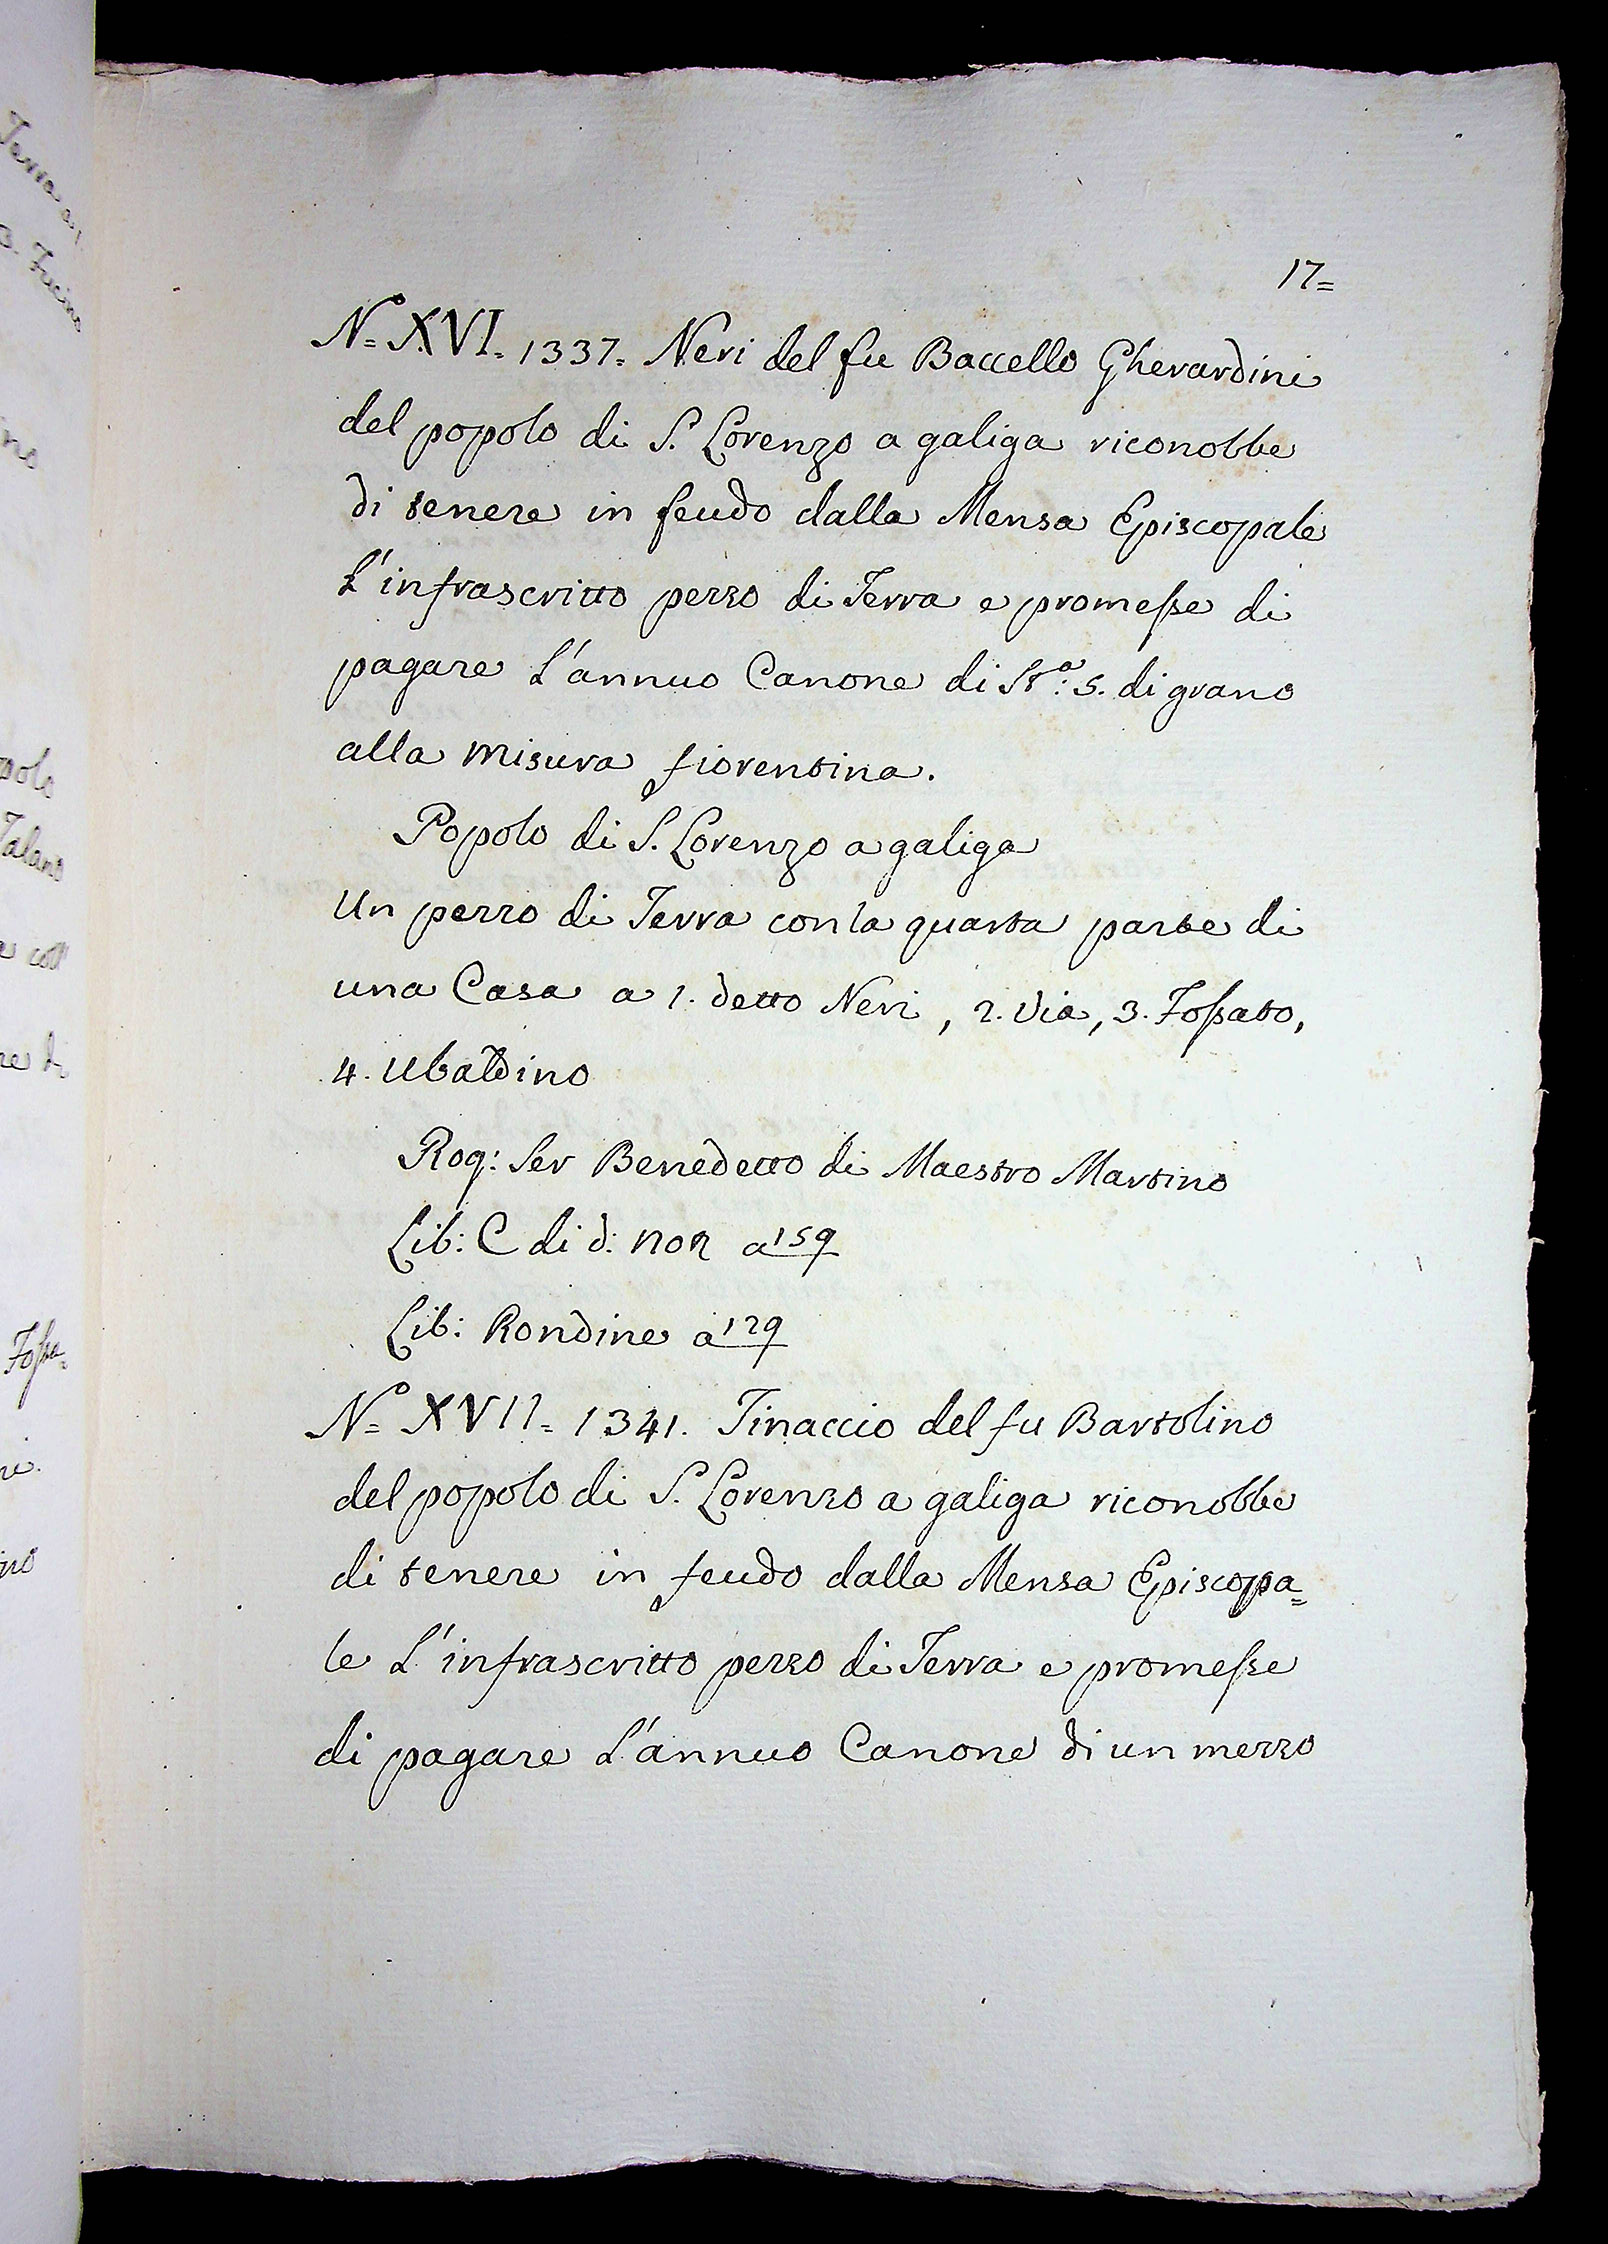 17=
N.º XVI. 1337. Neri del fu Baccello Gherardini
del popolo di S. Lorenzo a galiga riconobbe
di tenere in feudo dalla Mensa Episcopale
L'infrascritto pezzo di Terra e promesse di
pagare L'annuo Canone di St.ª 5. di grano
alla misura fiorentina.
Popolo di S. Lorenzo a galiga
Un pezzo di Terra con la quarta parte di
una Casa a 1. detto Neri, 2. Via, 3. Fossato,
4. Ubaldino
Rog: Ser Benedetto di Maestro Martino
Lib: C di d: non a 159
Lib: Rondine a 129
N.º XVII= 1341. Tinaccio del fu Bartolino
del popolo di S. Lorenzo a galiga riconobbe
di tenere in feudo dalla Mensa Episcopa=
le L'infrascritto pezzo di Terra e promesse
di pagare L'annuo Canone di un mezzo